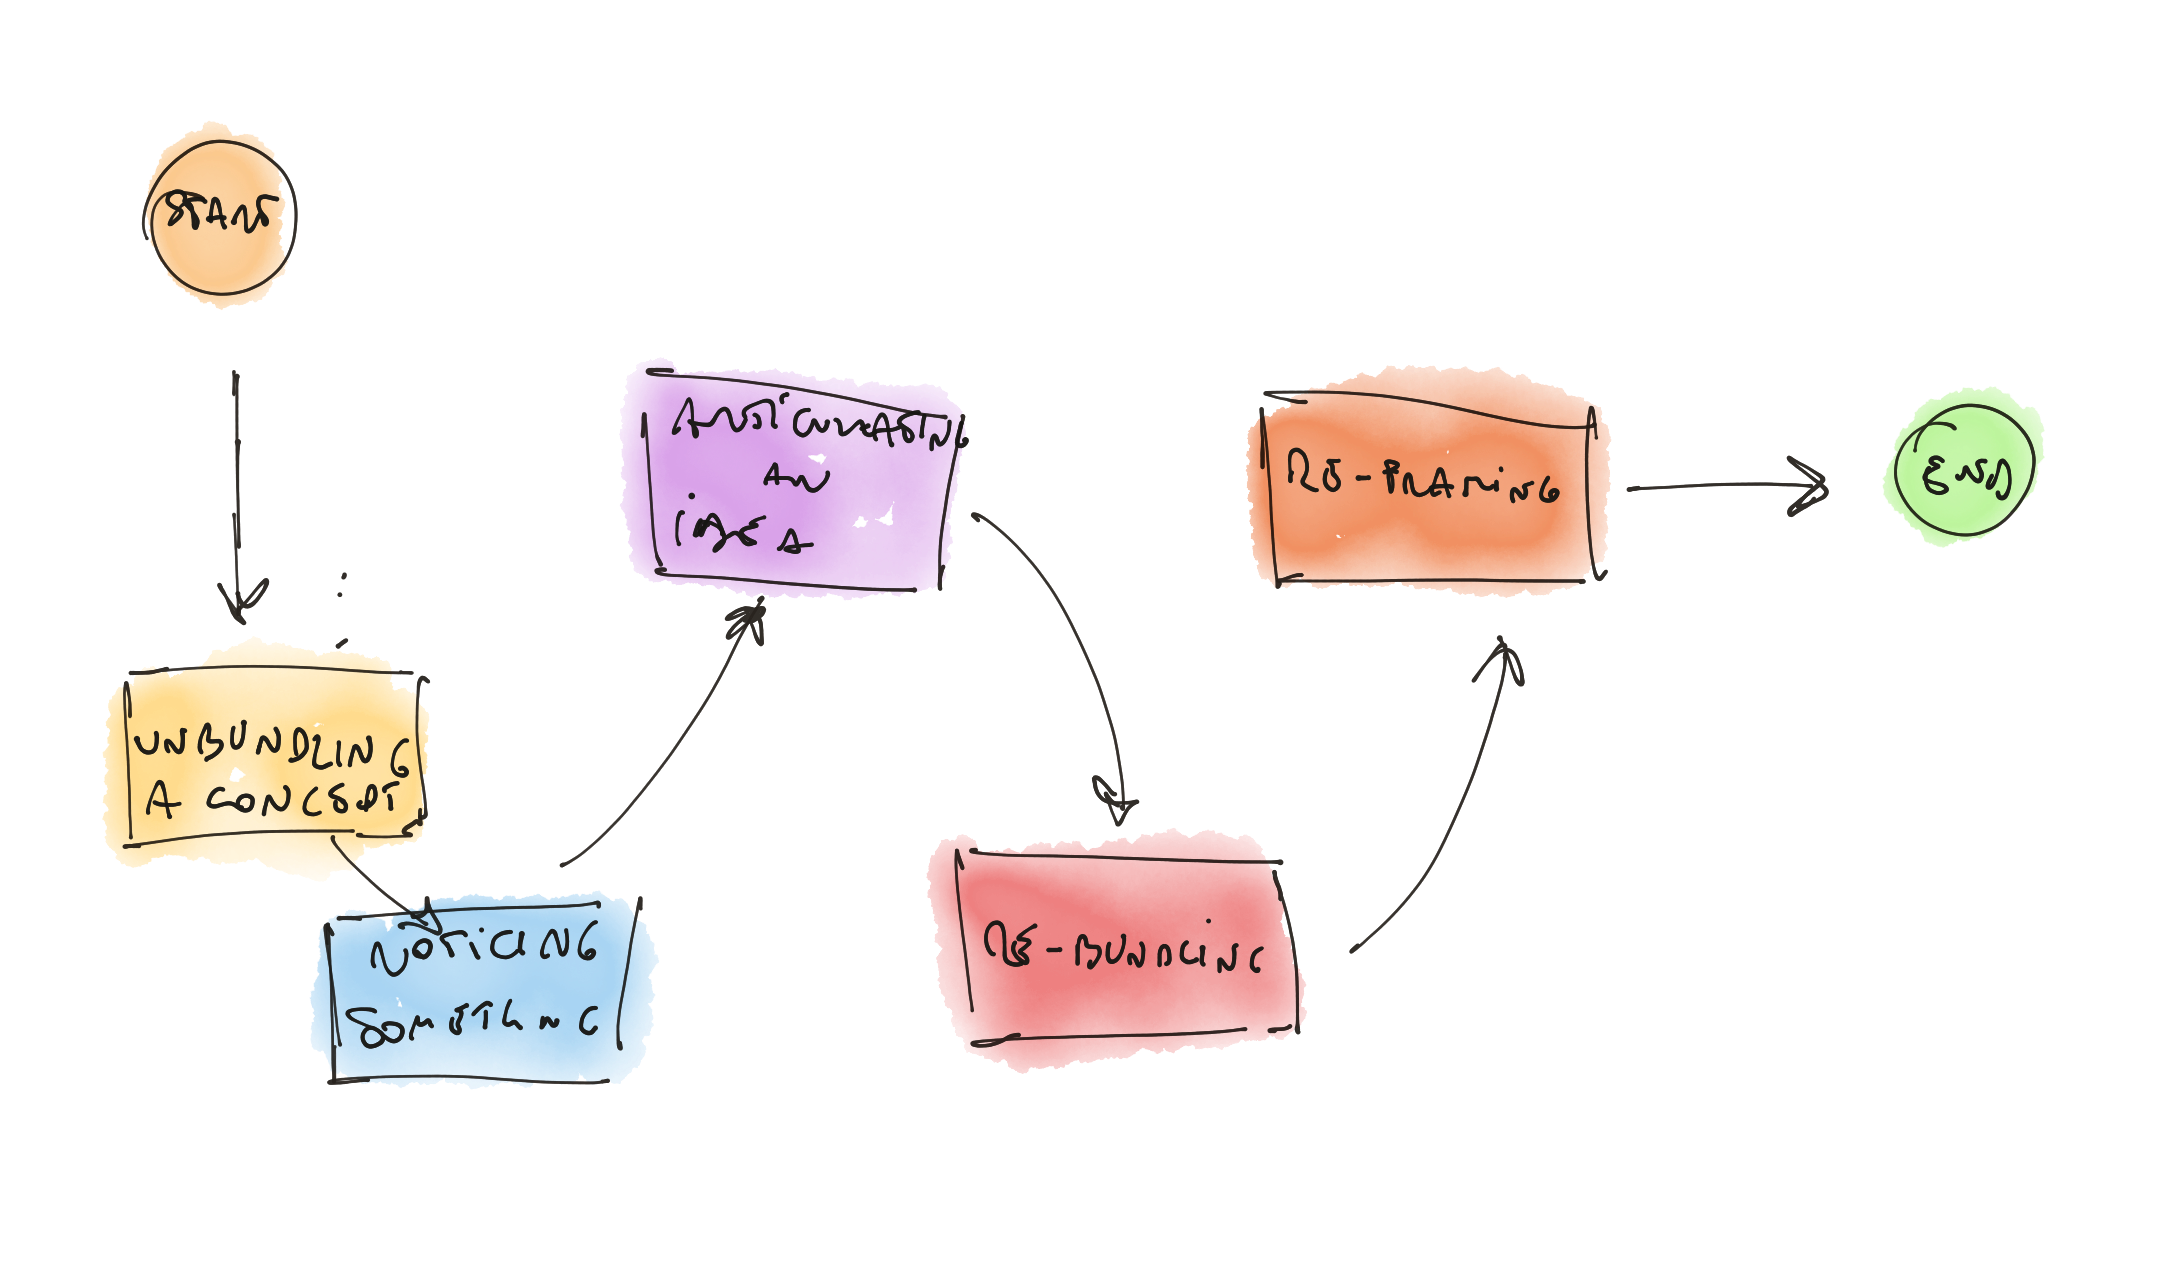 START
UNBUNDLING
A CONCEPT
NOTICING
SOMETHING
ARTICULATING
AN
IDEA
RE-BUNDLING
RE-FRAMING
END